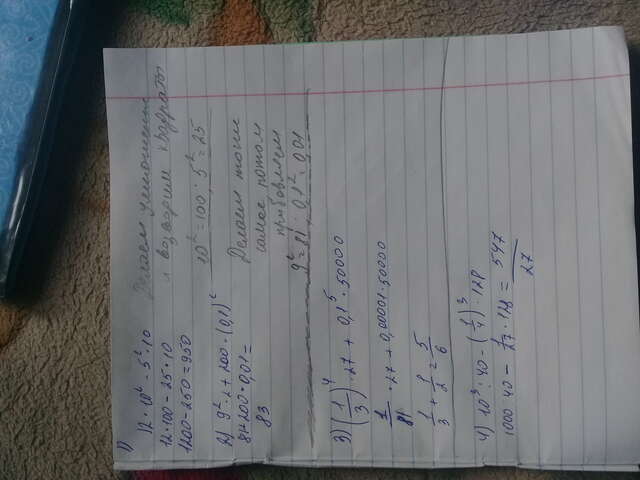 1)
12 · 10² - 5² · 10
12 · 100 - 25 · 10
1200 - 250 = 950
Делаем умножение
и возводим квадраты
10² = 100; 5² = 25
2) 9² · 2 + 200 · (0,1)²
81+200 · 0,01 =
83
Делаем тоже
самое потом
прибовляем
9² = 81; 0,1² = 0,01
3) (1/3)⁴ · 27 + 0,1⁵ · 50000
1/81 · 27 + 0,00001 · 50000
1/3 + 1/2 = 5/6
4) 10³ : 40 - (1/4)³ · 128
1000 40 - 1/27 · 128 = 547/27